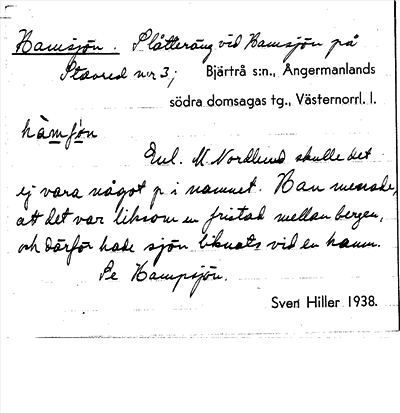 Hamsjön. Slåtteräng vid Hamsjön på
Stavred nr 3; Bjärtrå s:n., Ångermanlands
södra domsagas tg., Västernorrl. l.
hàmʃön
Enl. M. Nordlund skulle det
ej vara något p i namnet. Han menade,
att det var liksom en fristad mellan bergen,
och därför hade sjön liknats vid en hamn.
Se Hampsjön.
Sven Hiller 1938.